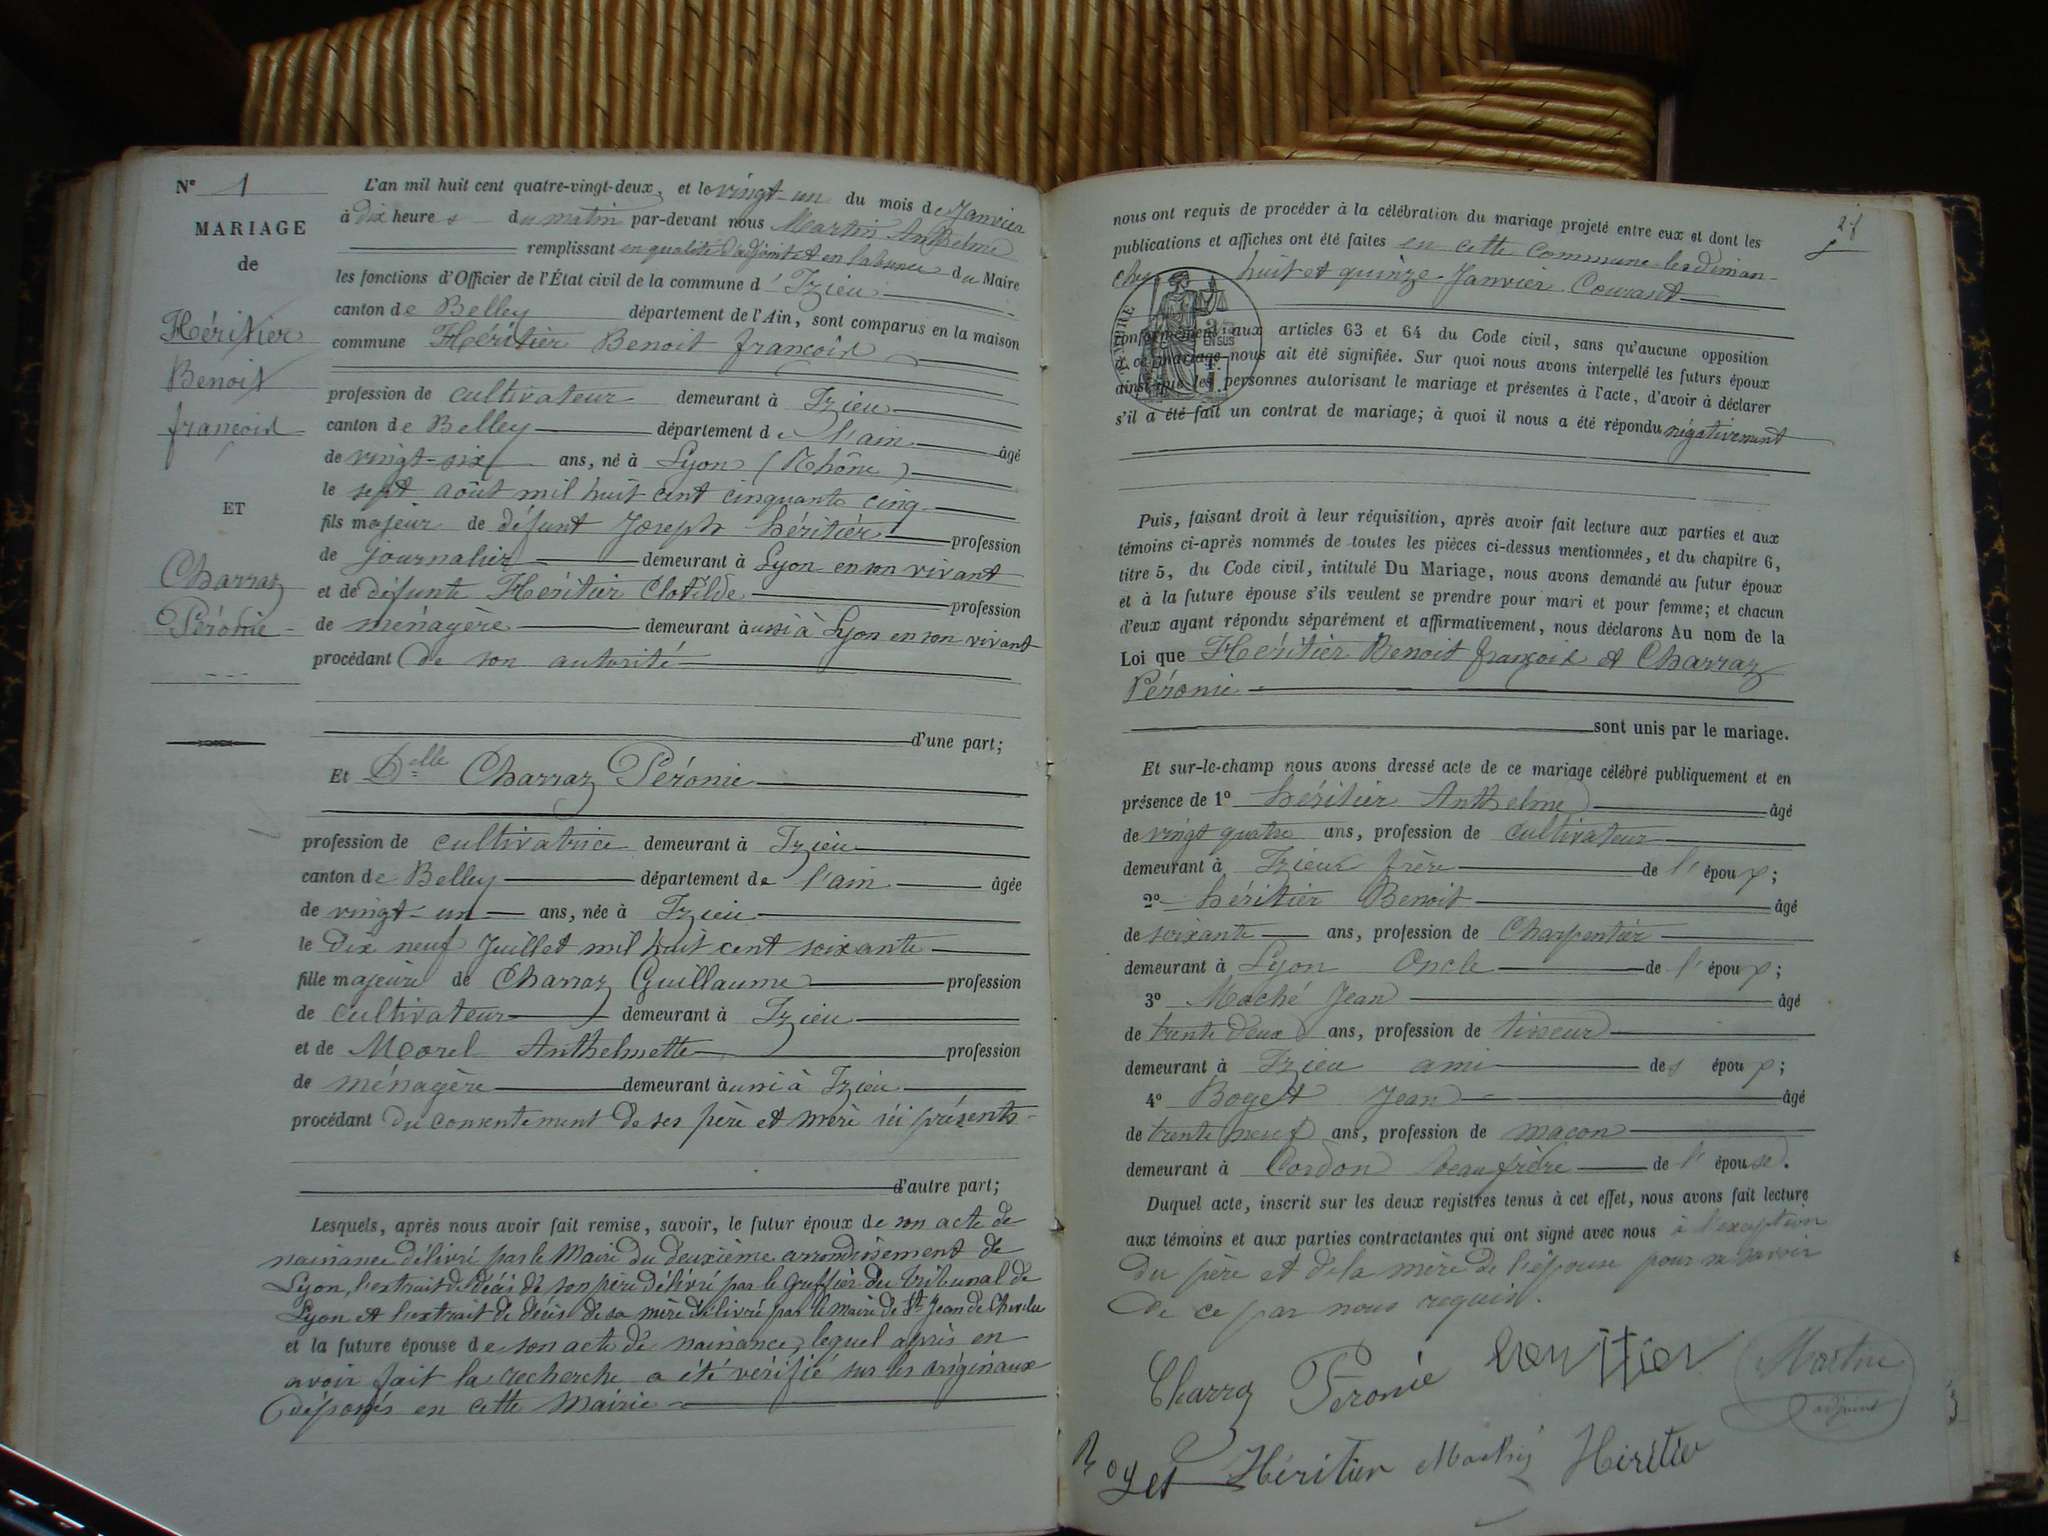 N° 1
MARIAGE
de
Héritier
Benoit
françois
ET
Charraz
Péronie
L'an mil huit cent quatre-vingt-deux, et le vingt-un du mois de Janvier
à dix heures du matin par-devant nous Martin Anthelme
remplissant en qualité d'adjoint et en l'absence du Maire
les fonctions d'Officier de l'État civil de la commune d'Izieu
canton de Belley département de l'Ain, sont comparus en la maison
commune Héritier Benoit françois
profession de cultivateur demeurant à Izieu
canton de Belley département de l'ain âgé
de vingt-six ans, né à Lyon (Rhône)
le sept août mil huit cent cinquante cinq
fils majeur de défunt Joseph héritier profession
de journalier demeurant à Lyon en son vivant
et de défunte Héritier Clotilde profession
de ménagère demeurant aussi à Lyon en son vivant
procédant de son autorité
d'une part;
Et Delle Charraz Péronie
profession de cultivatrice demeurant à Izieu
canton de Belley département de l'ain âgée
de vingt-un ans, née à Izieu
le dix neuf Juillet mil huit cent soixante
fille majeure de Charraz Guillaume profession
de cultivateur demeurant à Izieu
et de Morel Anthelmette profession
de ménagère demeurant aussi à Izieu
procédant du consentement de ses père et mère ici présents
d'autre part;
Lesquels, après nous avoir fait remise, savoir, le futur époux de son acte de
naissance délivré par le Maire du deuxième arrondissement de
Lyon, l'extrait de décès de son père délivré par le Greffier du Tribunal de
Lyon et l'extrait de décès de sa mère délivré par le maire de St Jean de Chevelu
et la future épouse de son acte de naissance, lequel après en
avoir fait la recherche a été vérifié sur les originaux
déposés en cette Mairie
2.f
nous ont requis de procéder à la célébration du mariage projeté entre eux et dont les
publications et affiches ont été faites en cette commune les diman-
ches huit et quinze Janvier Courant
TIMBRE
conformément aux articles 63 et 64 du Code civil, sans qu'aucune opposition
à ce mariage nous ait été signifiée. Sur quoi nous avons interpellé les futurs époux
ainsi que les personnes autorisant le mariage et présentes à l'acte, d'avoir à déclarer
s'il a été fait un contrat de mariage; à quoi il nous a été répondu négativement
Puis, faisant droit à leur réquisition, après avoir fait lecture aux parties et aux
témoins ci-après nommés de toutes les pièces ci-dessus mentionnées, et du chapitre 6,
titre 5, du Code civil, intitulé Du Mariage, nous avons demandé au futur époux
et à la future épouse s'ils veulent se prendre pour mari et pour femme; et chacun
d'eux ayant répondu séparément et affirmativement, nous déclarons Au nom de la
Loi que Héritier Benoit françois et Charraz
Péronie
sont unis par le mariage.
Et sur-le-champ nous avons dressé acte de ce mariage célébré publiquement et en
présence de 1° héritier Anthelme âgé
de vingt quatre ans, profession de cultivateur
demeurant à Izieu frère de l'époux;
2° héritier Benoit âgé
de soixante ans, profession de Charpentier
demeurant à Lyon Oncle de l'époux;
3° Maché Jean âgé
de trente deux ans, profession de tisseur
demeurant à Izieu ami des époux;
4° Boget Jean âgé
de trente neuf ans, profession de maçon
demeurant à Cordon beau frère de l'épouse.
Duquel acte, inscrit sur les deux registres tenus à cet effet, nous avons fait lecture
aux témoins et aux parties contractantes qui ont signé avec nous à l'exception
du père et de la mère de l'épouse pour ne savoir
de ce par nous requis.
Charraz Péronie heritier Martin
adjoint
Boget Héritier Maché Héritier